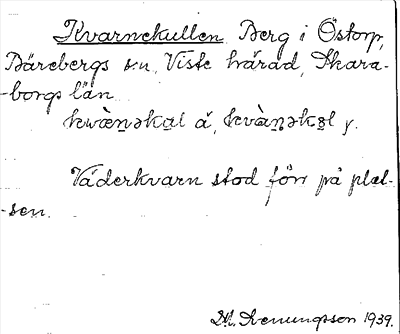 Kvarnekullen Berg i Östorp,
Bärebergs sn, Viste härad, Skara-
-borgs län.
kwàṇəkal ä, kvàṇəkəl y.
Väderkvarn stod förr på plat-
-sen.
M. Svenungsson 1939.